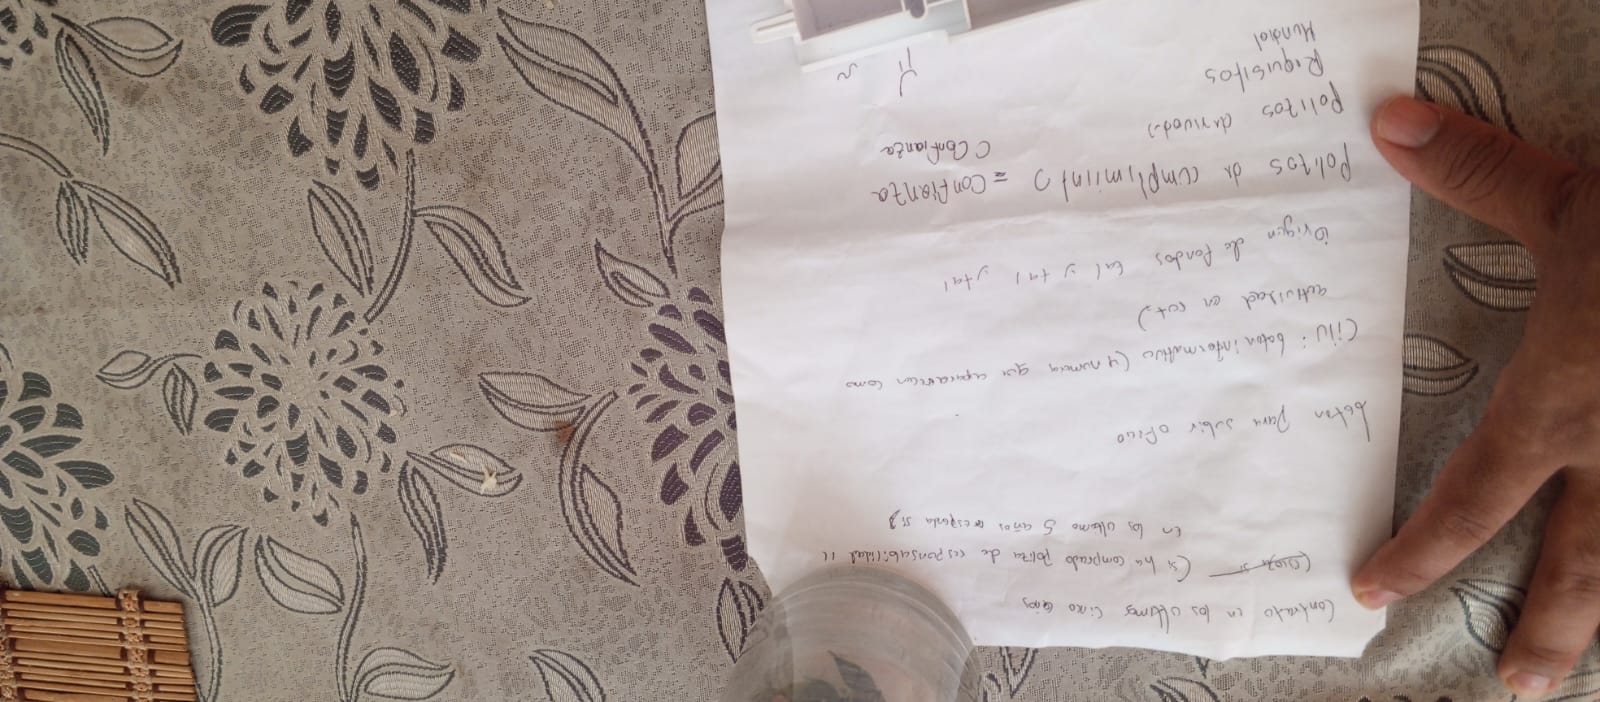 Contrato en los ultimos cinco años
(si ha comprado poliza de responsabilidad
en los ultimo 5 años responda si)
boton para subir oficio
Ciiu: boton informativo (4 numeros que aparescan como
actividad en rut)
Origen de fondos tal y tal y tal
Polizas de cumplimiento = Confianza
C Confianza
Polizas derivados
Requisitos
Mundial